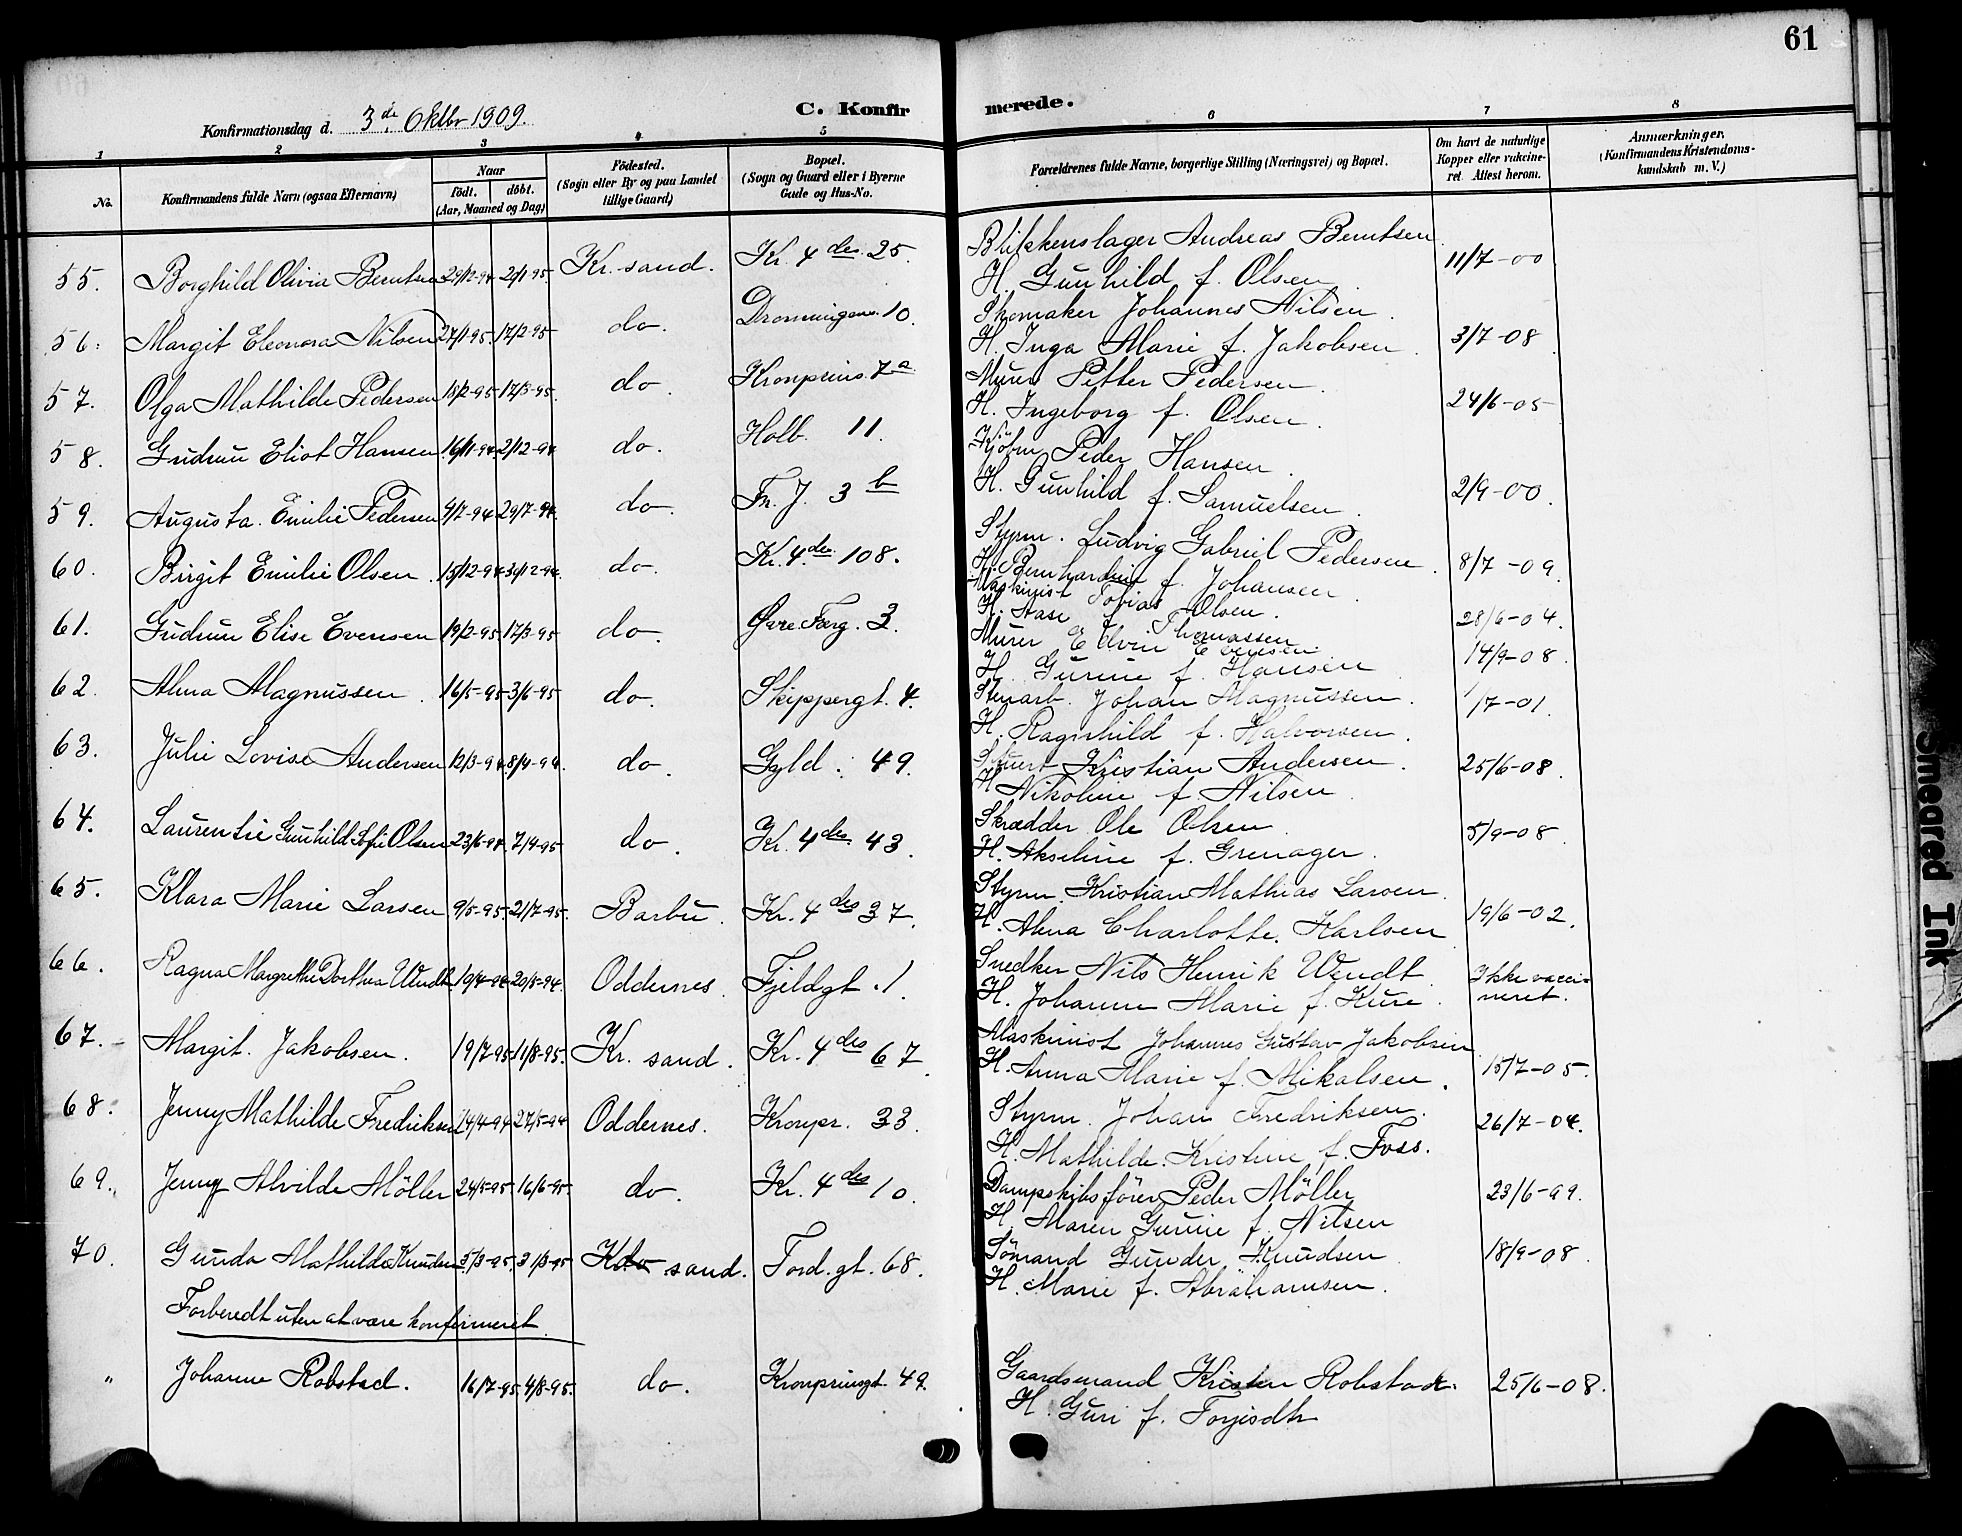 61
Konfirmationsdag d. 3de Oktbr 1909.
C. Konfirmerede.
1 2 3 4 5 6 7 8
No.
Konfirmandens fulde Navn (ogsaa Efternavn)
Naar
födt. döbt.
(Aar, Maaned og Dag)
Födested.
(Sogn eller By og paa Landet
tillige Gaard)
Bopæl.
(Sogn og Gaard eller i Byerne
Gade og Hus-No.
Forældrenes fulde Navne, borgerlige Stilling (Næringsvei) og Bopæl.
Om havt de naturlige
Kopper eller vakcine-
ret. Attest herom.
Anmærkninger.
(Konfirmandens Kristendoms-
kundskab m. V.)
55. Borghild Olivia Berntsen 29/12-94 20/1-95. Kr.sand. Kr. 4des 25. Blikkenslager Andreas Berntsen 11/7-00
H. Gunhild f. Olsen
56. Margit Eleonora Nilsen 27/1-95. 17/2-95 do. Dronningens. 10. Skomaker Johannes Nilsen. 3/7-08
H. Inga Marie f. Jakobsen.
57. Olga Mathilde Pedersen 18/2-95. 17/3-95. do. Kronprins. 7a Murer Petter Pedersen. 24/6-05
H. Ingeborg f. Olsen.
58. Gudrun Eliot Hansen 16/11-94. 2/12-94 do. Holb. 11. Kjöbm Peder Hansen. 2/9-00.
H. Gunhild f. Samuelsen.
59. Augusta Emilie Pedersen 4/7-94 29/7-94. do. Fr. J. 3b Styrm. Ludvig Gabriel Pedersen. 8/7-09.
H. Bernhardine f. Johansen.
60. Birgit Emilie Olsen. 15/12-94 31/12-94. do. Kr. 4des 108. Maskinist Tobias Olsen. 28/6-04.
H. Aase f. Thomassen
61. Gudrun Elise Evensen 19/2-95. 17/3-95 do. Øvre Torg. 3. Murer Edvin Evensen. 14/9-08.
H. Gurine f. Hansen
62. Alma Magnussen. 16/5-95 3/6-95 do. Skippergt. 4. Stenarb. Johan Magnussen. 1/7-01.
H. Ragnhild f. Halvorsen.
63. Julie Lovise Andersen 12/3-94. 8/4-94. do. Gyld. 49. Kristian Andersen. 25/6-08.
H Nikoline f. Nilsen.
64. Laurentie Gunhild Sofie Olsen 23/6-94. 7/4-95 do. Kr. 4des 43. Skrædder Ole Olsen. 5/9-08.
H. Akseline f. Grenager.
65. Klara Marie Larsen 9/5-95. 21/7-95. Barbu. Kr. 4des 37. Styrm. Kristian Mathias Larsen. 19/6-02.
H. Alma Charlotte Karlsen
66. Ragna Margrethe Dorthea Wendt 19/4-94 20/5-94. Oddernes. Fjeldgt. 1. Snedker Nils Henrik Wendt. Ikke vacci-
H. Johanne Marie f. Kure. neret.
67. Margit Jakobsen. 19/7-95 11/8-95. Kr. sand. Kr. 4des 67. Maskinist Johannes Gustav Jakobsen 15/7-05.
H. Anna Marie f. Mikalsen.
68. Jenny Mathilde Fredriksen 14/4-94 27/5-94 Oddernes. Kronpr. 33. Styrm. Johan Fredriksen. 26/7-04.
H. Mathilde Kristine f. Foss.
69. Jenny Alvilde Möller 24/5-95. 16/6-95. do. Kr. 4des 10. Dampskibsförer Peder Möller 23/6-99.
H. Maren Gurine f. Nilsen
70. Gunda Mathilde Knudsen 5/3-95. 31/3-95 K sand. Tord. gt. 68. Sömand Gunder Knudsen 18/9-08.
H. Marie f. Abrahamsen.
Forberedt uten at være konfirmeret
" Johanne Robstad. 16/7-95 4/8-95. do. Kronprinsgt. 49. Gaardsmand Kristen Robstad. 25/6-08.
H. Guri f.
Smeared Ink